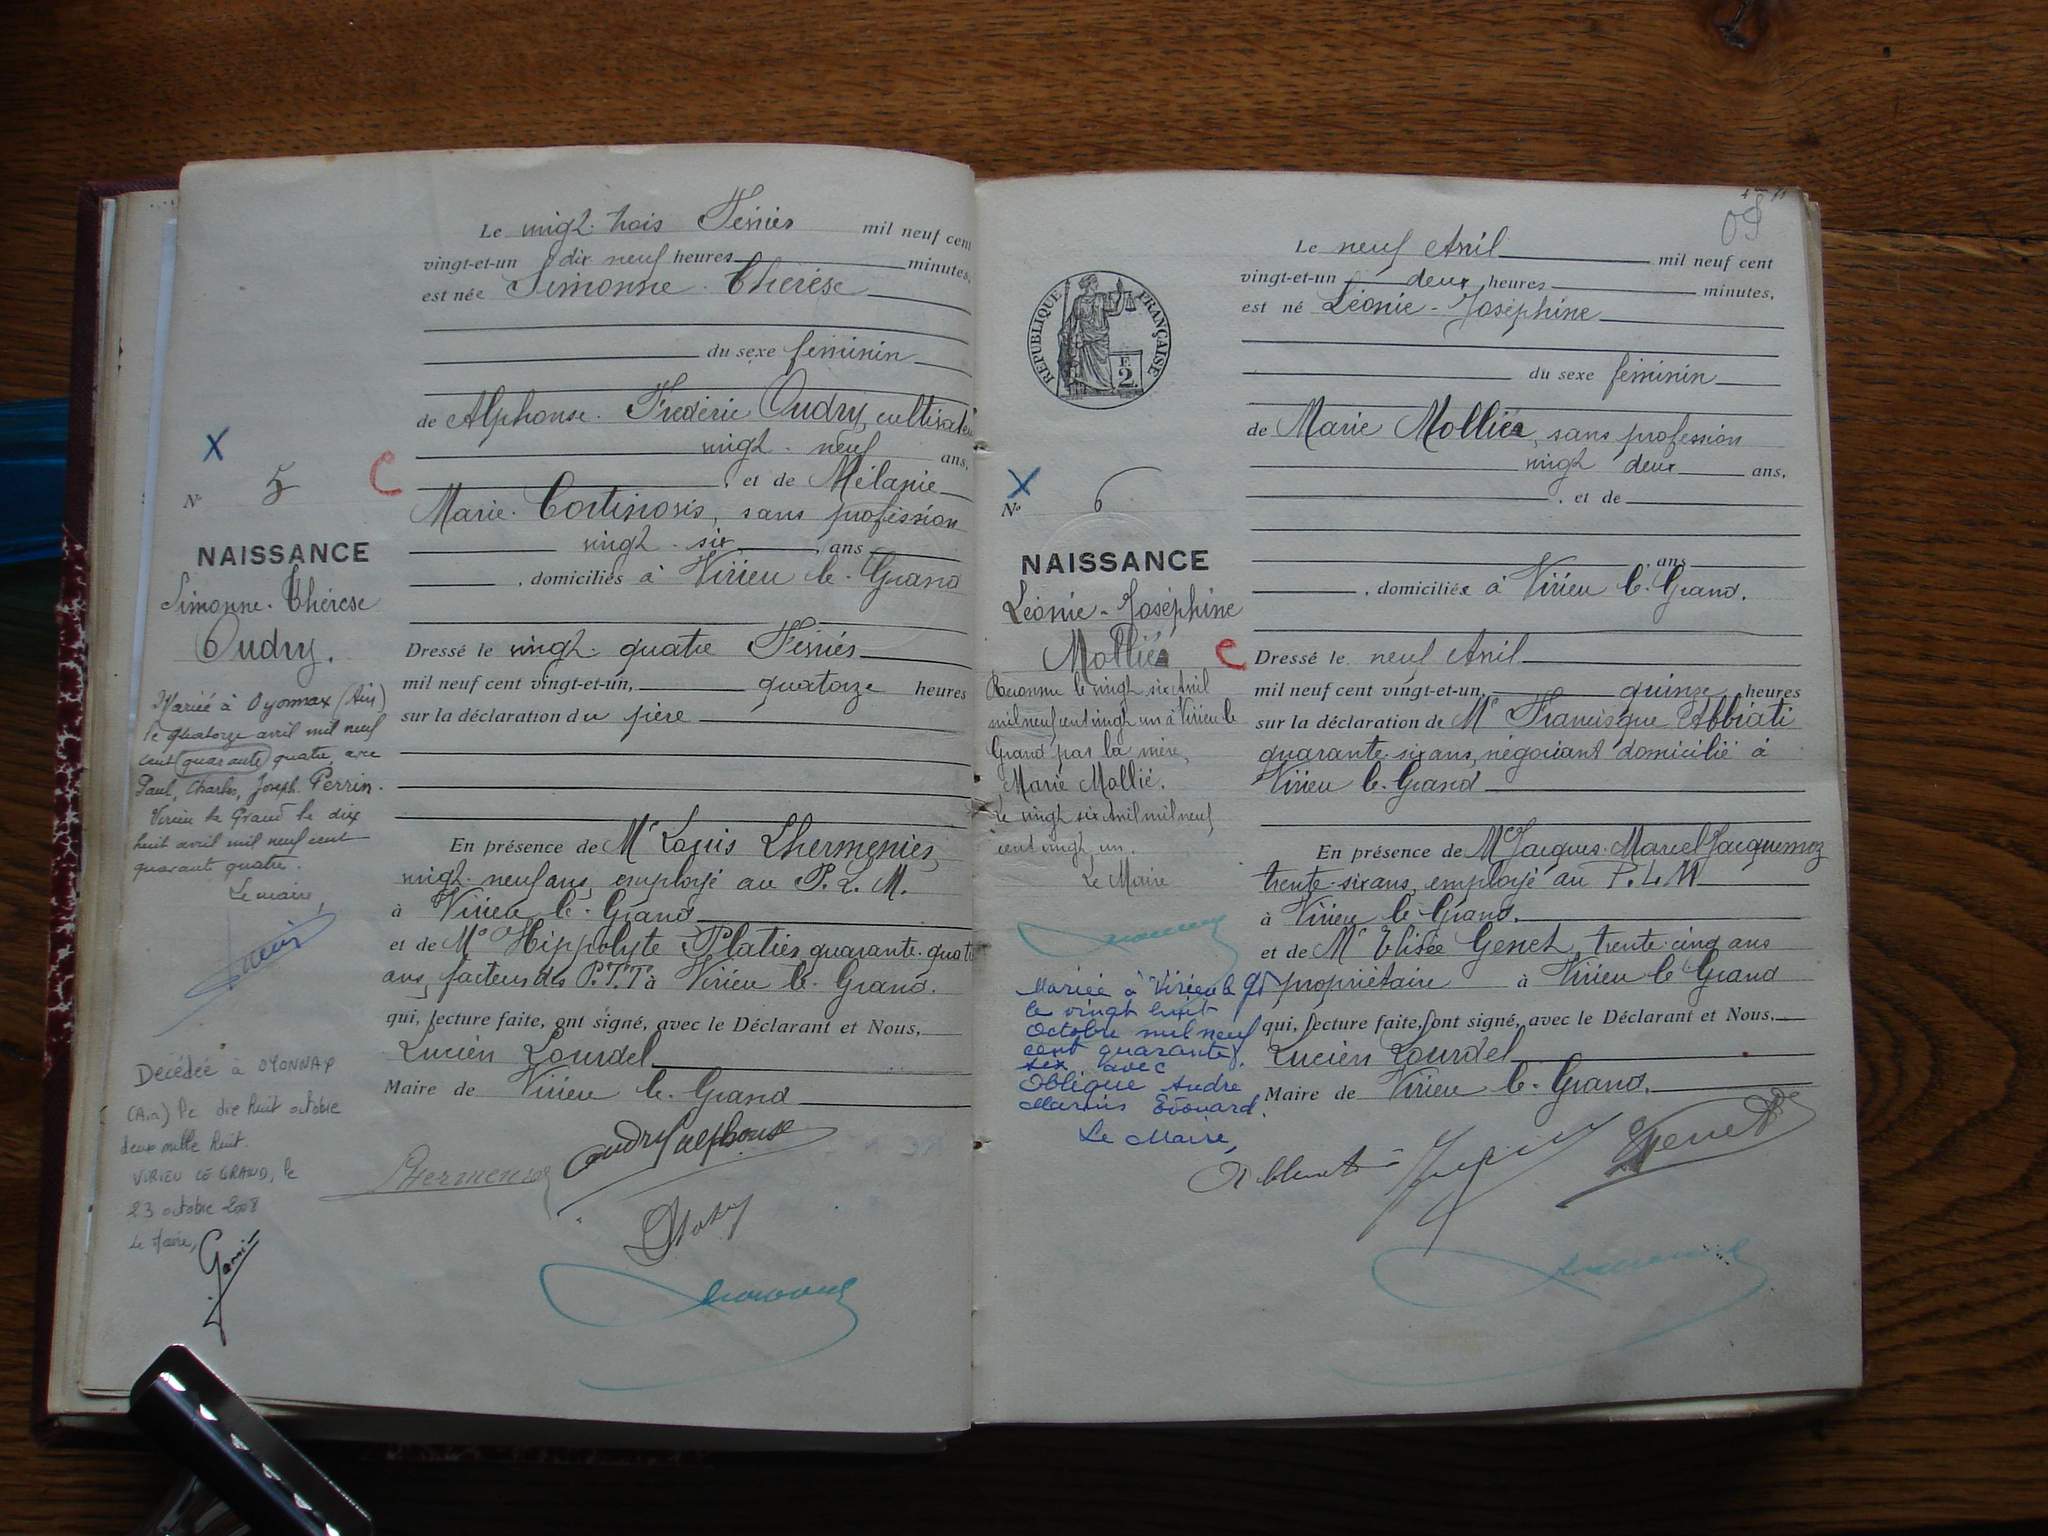 Le vingt-trois Février mil neuf cent
vingt-et-un dix neuf heures minutes,
est née Simonne-Thérèse
du sexe féminin
de Alphonse-Frédéric Oudry, cultivateur
vingt-neuf ans,
, et de Mélanie
Marie-Cortinovis, sans profession
vingt-six, ans
, domiciliés à Virieu le-Grand
Dressé le vingt-quatre Février
mil neuf cent vingt-et-un, quatorze heures
sur la déclaration du père
En présence de Mr Louis Lhermenier,
vingt-neuf ans, employé au P.L.M.
à Virieu le-Grand
et de Mr Hippolyte Platier, quarante-quatre
ans, facteur des P.T.T à Virieu le-Grand.
qui, lecture faite, ont signé, avec le Déclarant et Nous,
Lucien Lourdel
Maire de Virieu le-Grand
oudry alphonse
Lhermenier
X
N° 5
C
NAISSANCE
Simonne-Thérèse
Oudry.
Mariée à Oyonnax (Ain)
le quatorze avril mil neuf
cent quarante quatre avec
Paul, Charles, Joseph Perrin.
Virieu le Grand le dix
huit avril mil neuf cent
quarante quatre.
Le maire,
Décédée à OYONNAX
(Ain) le dix huit octobre
deux mille huit.
VIRIEU LE GRAND, le
23 octobre 2008
Le Maire,
Le neuf Avril mil neuf cent
vingt-et-un deux heures minutes,
est né Léonie-Joséphine
du sexe féminin
de Marie Mollié, sans profession
vingt deux ans,
, et de
ans
, domiciliée à Virieu le-Grand.
Dressé le neuf Avril
mil neuf cent vingt-et-un, quinze heures
sur la déclaration de Mr Francisque Abbiati
quarante-six ans, négociant domicilié à
Virieu le-Grand
En présence de Mr Jacques-Marcel Jacquemoz
trente-six ans, employé au P.L.M
à Virieu le-Grand.
et de Mr Elisée Genet, trente-cinq ans
propriétaire à Virieu le Grand
qui, lecture faite, ont signé, avec le Déclarant et Nous,
Lucien Lourdel
Maire de Virieu le-Grand.
Genet
RÉPUBLIQUE FRANÇAISE
F.
2
X
N° 6
NAISSANCE
Léonie-Joséphine
Mollié
C
Reconnue le vingt six Avril
mil neuf cent vingt un à Virieu le
Grand par la mère,
Marie Mollié.
Le vingt six Avril mil neuf
cent vingt un.
Le Maire
Mariée à Virieu le Gd
le vingt huit
Octobre mil neuf
cent quarante
six avec
Oblique André
Marius Edouard.
Le Maire,